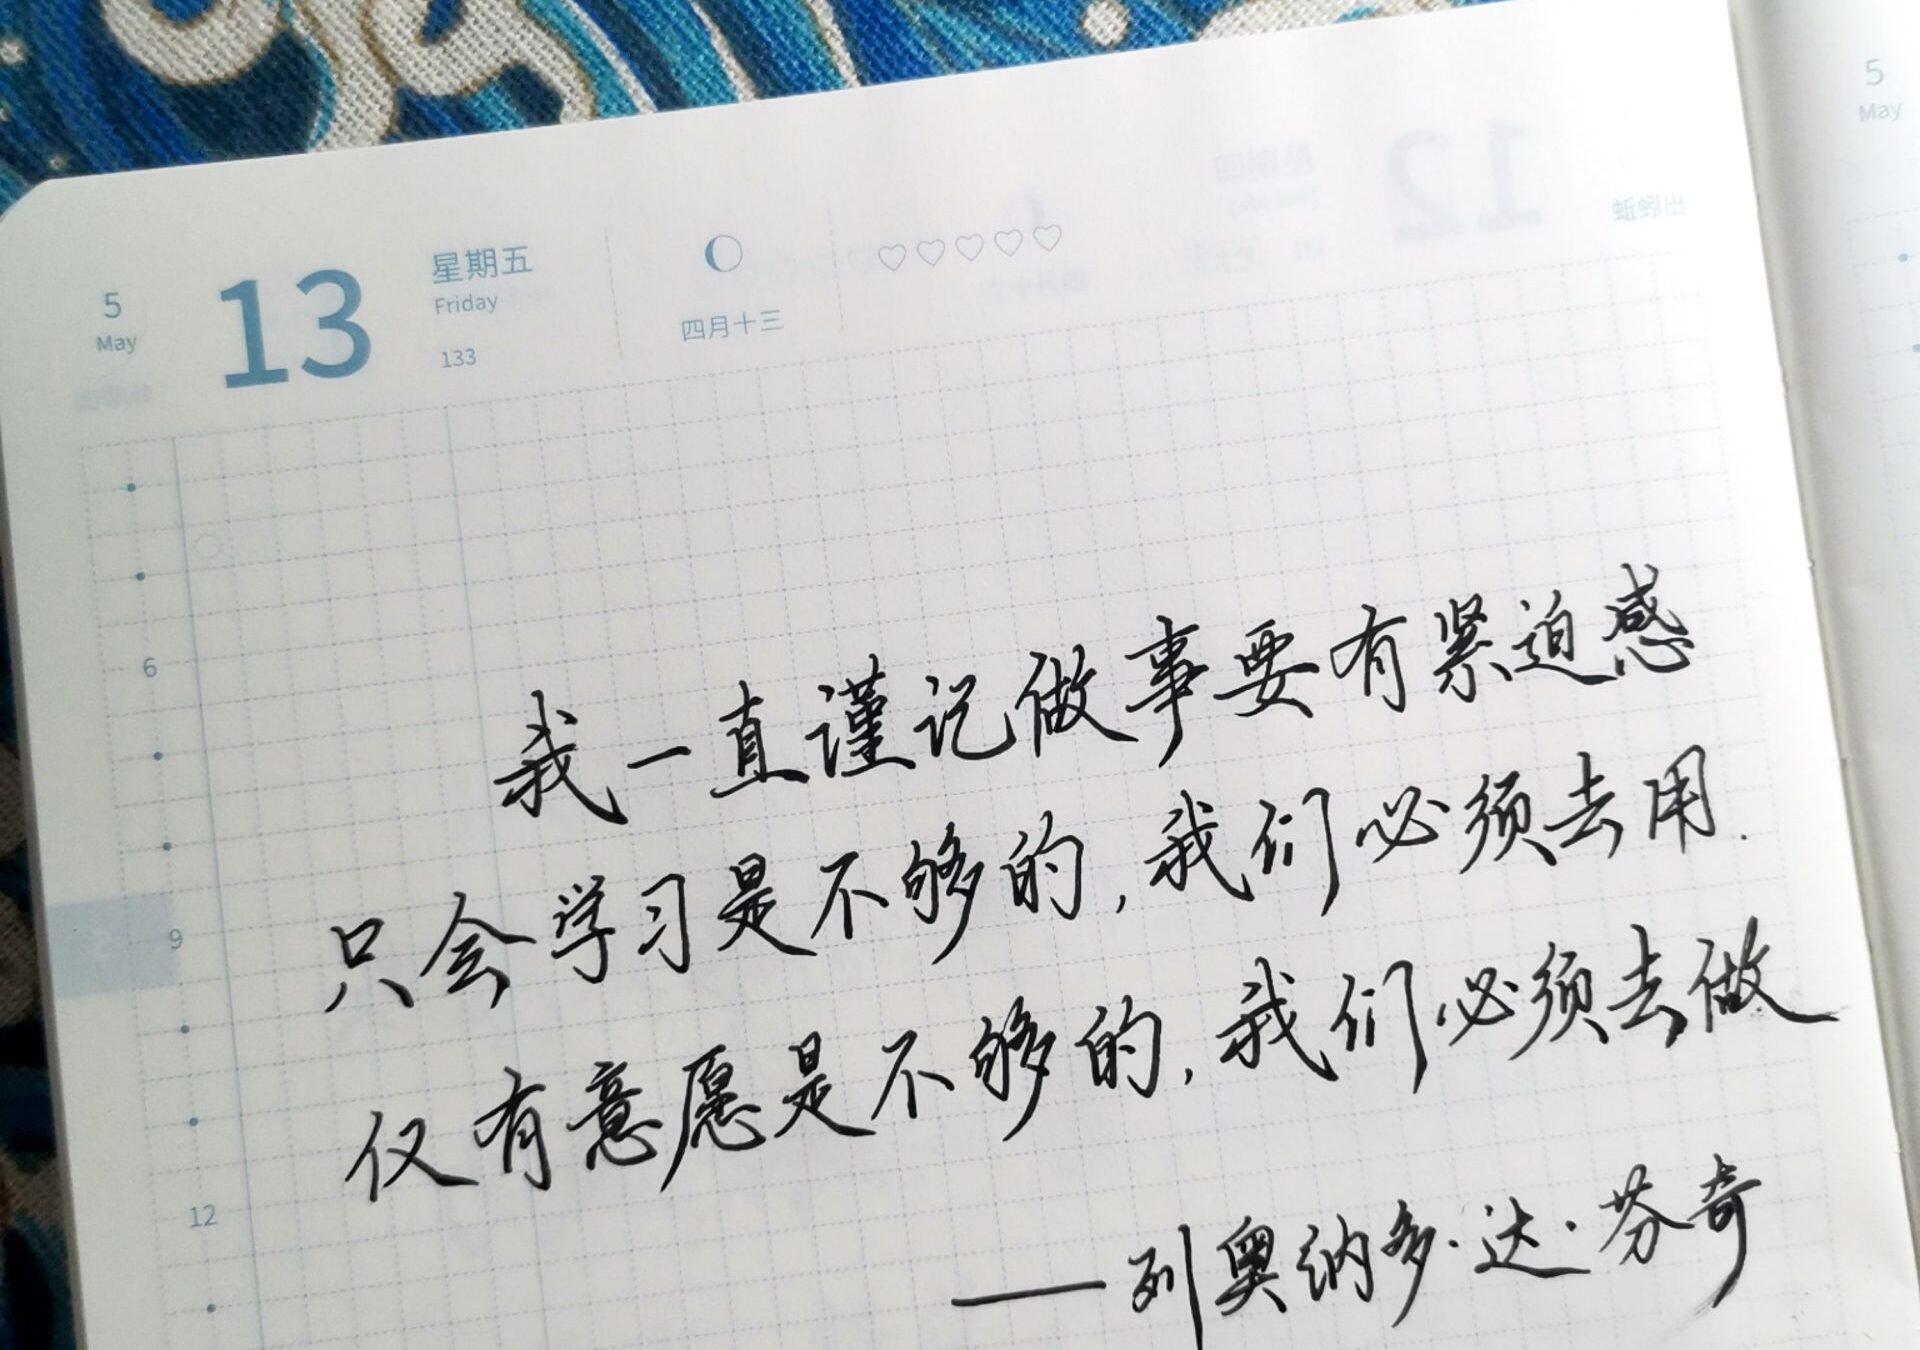 5
May
13
星期五
Friday
133
四月十三
5
May
6
9
12
我一直谨记做事要有紧迫感
只会学习是不够的,我们必须去用.
仅有意愿是不够的,我们必须去做
——列奥纳多·达·芬奇